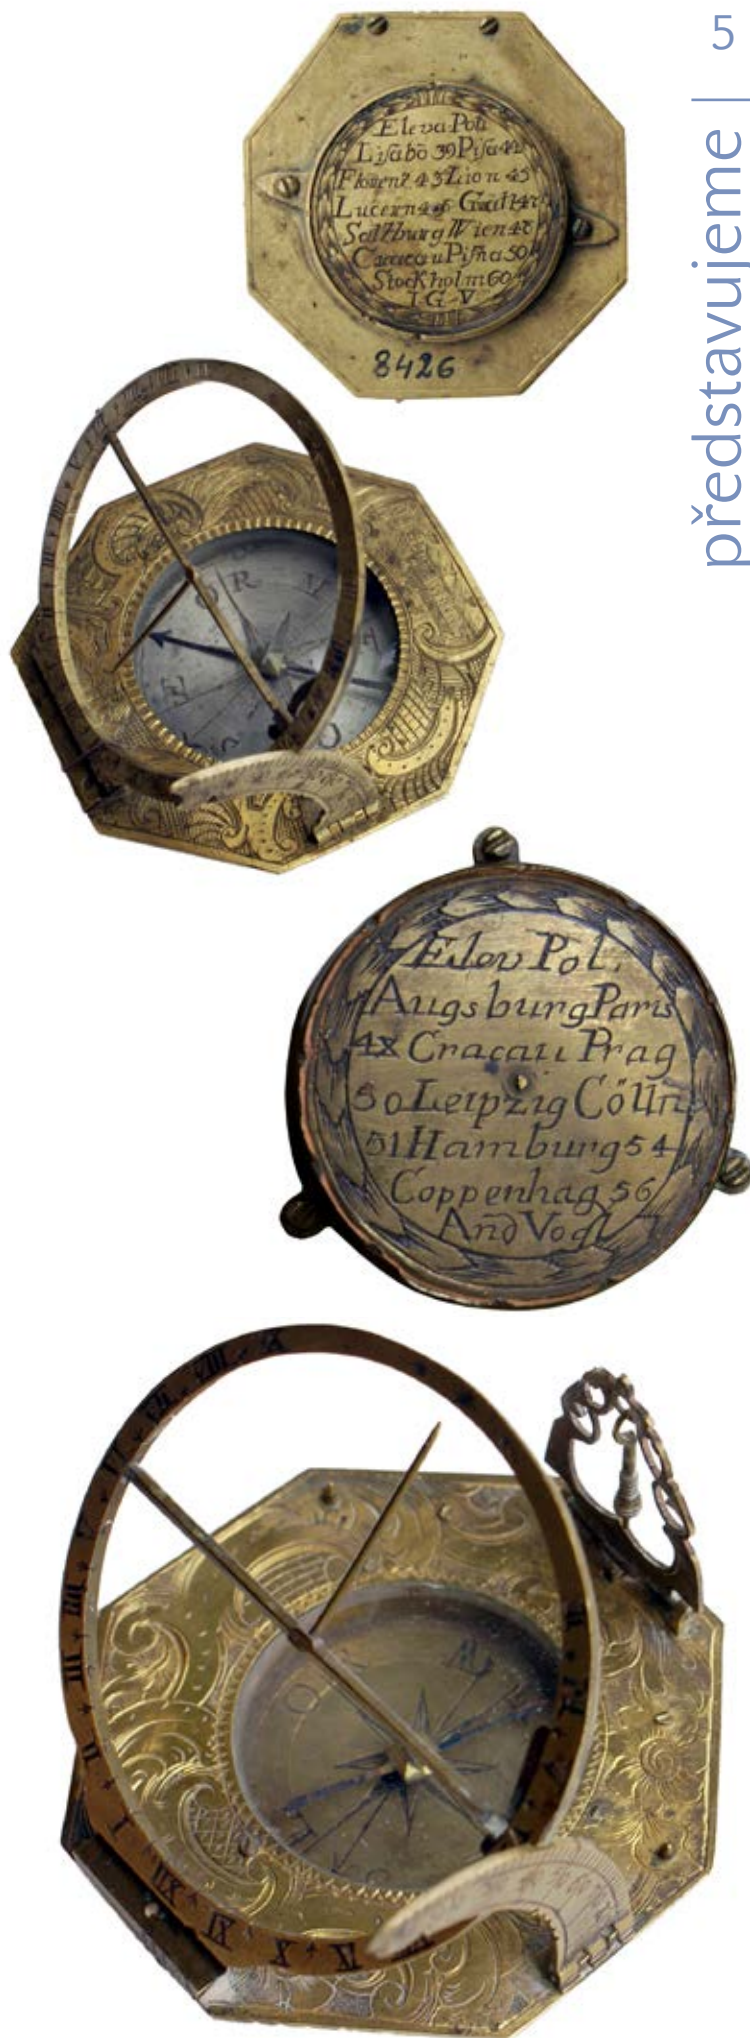 5
představujeme
Eleva Poli
Lisabō 39 Pisa 42
Florenz 43 Lion 45
Lucern Gratz 47
Saltzburg Wien 48
Cracau Prña 50
StocKholm 60
I G V
8426
O R
E
S
O
Elev Pol.
Augsburg Paris
48 Cracau Prag
50 Leipzig Cölln
51 Hamburg 54
Coppenhag 56
And Vogl
IX
VIII
VII
VI
V
IIII
III
II
I
XII
XI
X